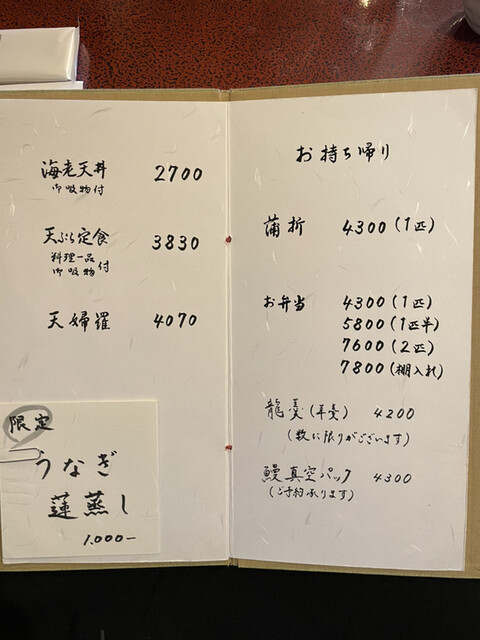 海老天丼 2700
御吸物付
天ぷら定食 3830
料理一品
御吸物付
天婦羅 4070
限定
うなぎ
蓮蒸し
1,000-
お持ち帰り
蒲折 4300(1匹)
お弁当 4300(1匹)
5800(1匹半)
7600(2匹)
7800(棚入れ)
龍羹(羊羹) 4200
(数に限りがございます)
鰻真空パック 4300
(ご予約承ります)